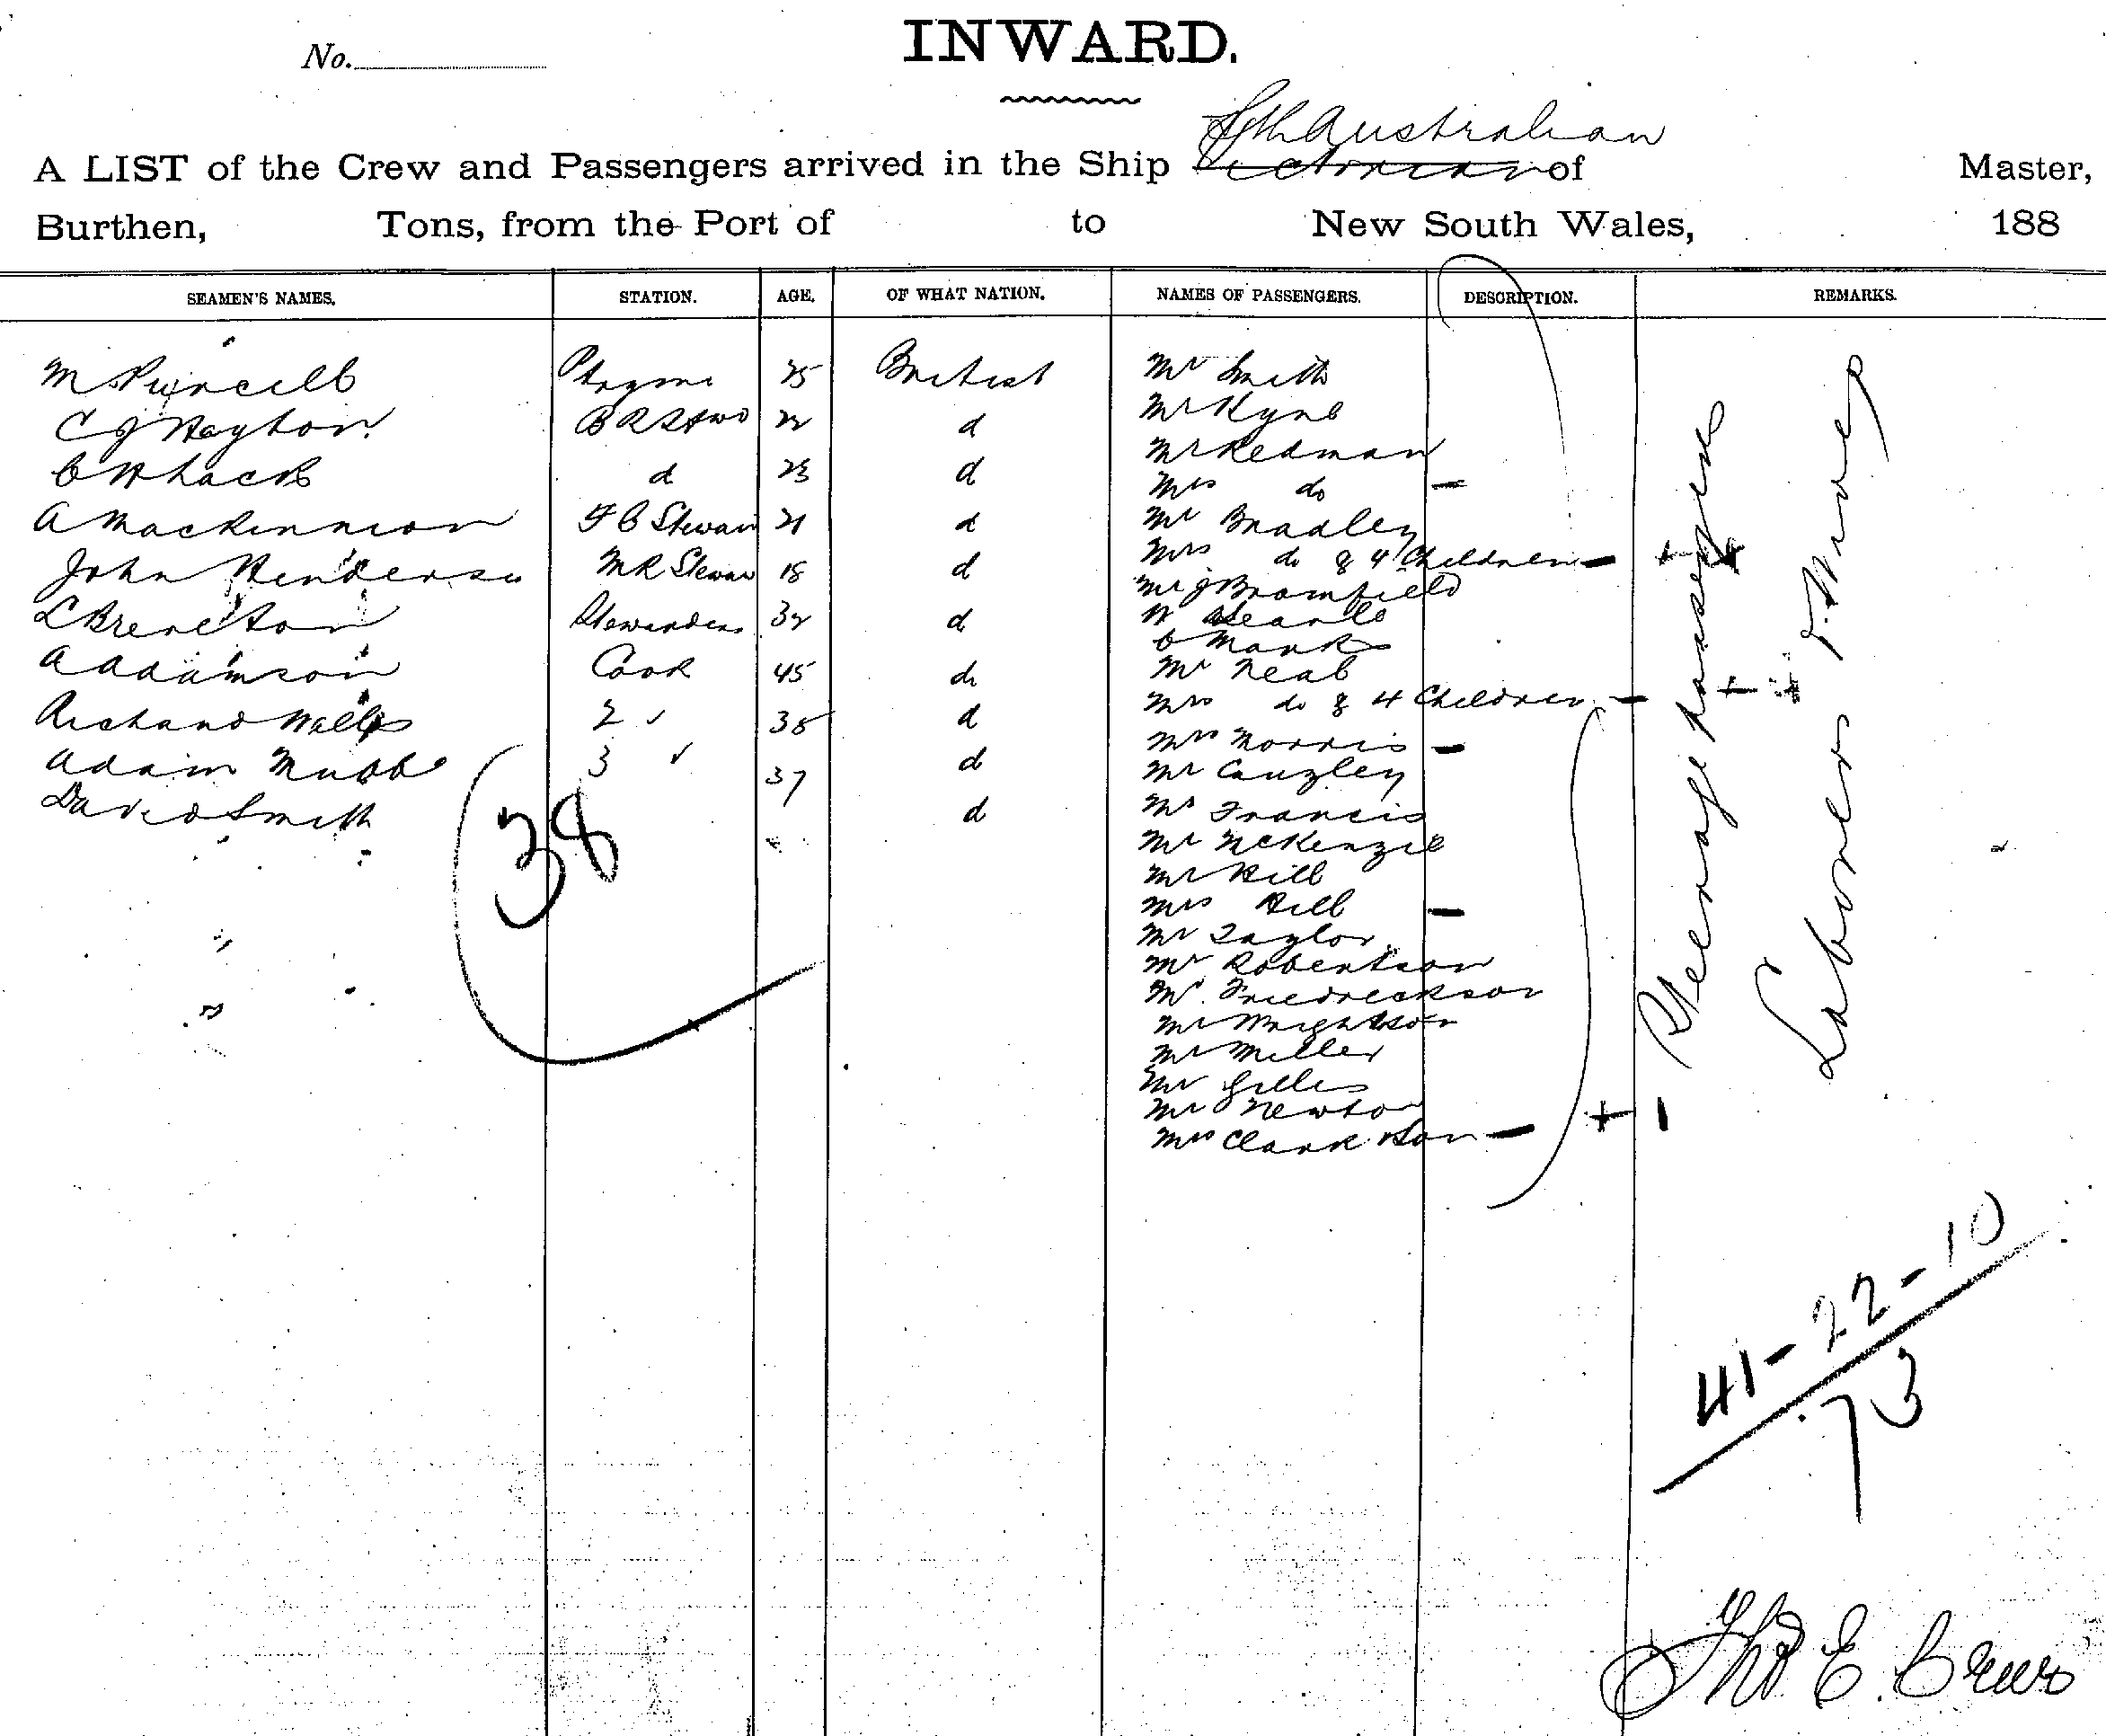 No.
INWARD.
Sth Australian
A LIST of the Crew and Passengers arrived in the Ship Victorian of Master,
Burthen, Tons, from the Port of to New South Wales, 188
SEAMEN'S NAMES. STATION. AGE. OF WHAT NATION. NAMES OF PASSENGERS. DESCRIPTION. REMARKS.
M Purcell 25 British Mr Smith
C J Hayton 22 d Mr Kyne
C H Lack d 23 d Mr Redman
Mrs do -
A Mackinnion F C Stewar 21 d Mr Bradley
John Henderso M R Stewar 18 d Mrs do & 4 Children -
Mr J Bromfield
L Brereton Stewardess 32 d W Searle
C Marks
A Adamson Cook 45 do Mr Neal
Mrs do & 4 Children -
Richard Wells 2 ✓ 35 d Mrs Norris -
Adam Mubbe 3 ✓ 37 d Mr Canzley
David Smith d Mr Francis
Mr McKenzie
Mr Hill
Mrs Hill -
Mr Taylor
Mr Robertson
Mr Friedrickson
Mr Wrightson
Mr Miller
Mr Gilles
Mr Newton
Mrs Clarkson - + 1
38
Steerage Passengers
Labourers & Miners
41-22-10
73
Thos E.